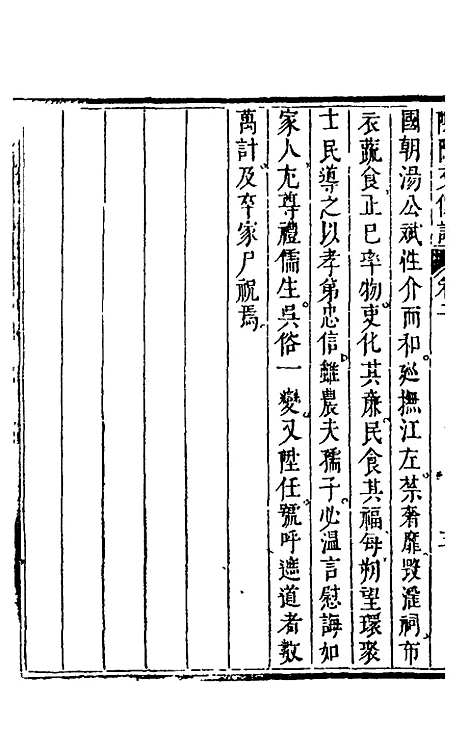 國朝湯公斌性介而和廵撫江左禁奢靡毀滛祠布
衣蔬食正巳率物吏化其廉民食其福每朔望環聚
士民導之以孝弟忠信雖農夫孺子必溫言慰誨如
家人尤尊禮儒生吳俗一變又陞任號呼遮道者數
萬計及卒家尸祝焉